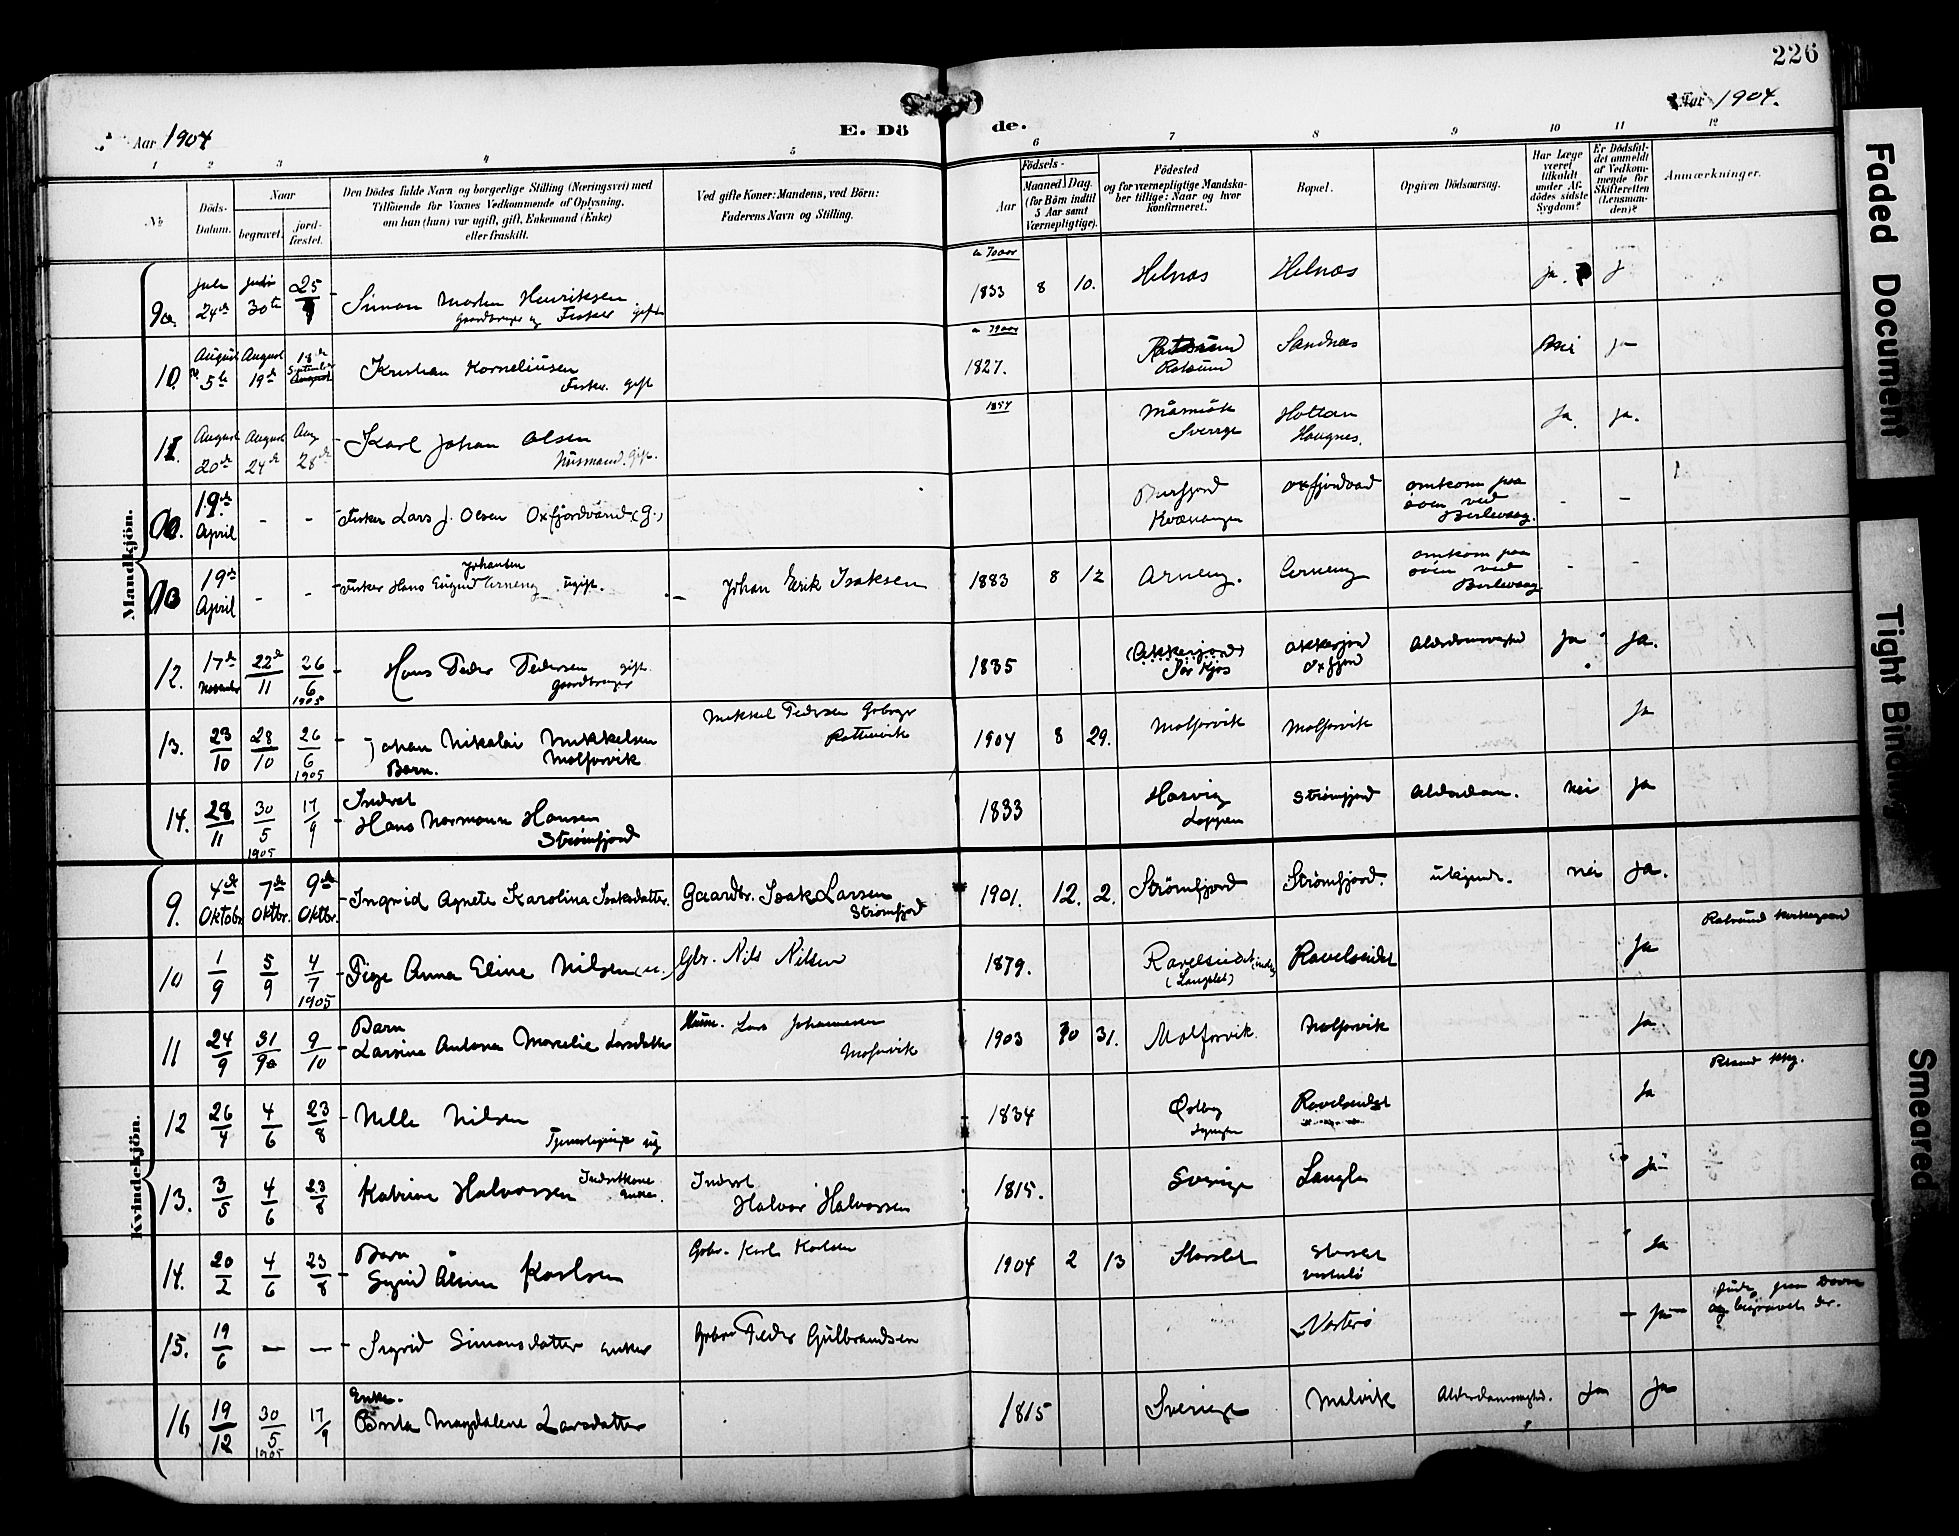 226
Aar 1904
E. Döde.
Aar 1904.
1 2 3 4 5 6 7 8 9 10 11 12
No
Döds-Datum.
Naar
begravet.
jord-fæstet.
Den Dödes fulde Navn og borgerlige Stilling (Næringsvei) med
Tilföiende for Voxnes Vedkommende af Oplysning,
om han (hun) var ugift, gift, Enkemand (Enke)
eller fraskilt.
Ved gifte Koner: Mandens, ved Börn:
Faderens Navn og Stilling.
Födsels-
Aar
Maaned. Dag.
(for Börn indtil
5 Aar samt
Værnepligtige).
Födested
og for værnepligtige Mandska-
ber tillige: Naar og hvor
konfirmeret.
Bopæl.
Opgiven Dödsaarsag.
Har Læge
været
tilkaldt
under Af-
dödes sidste
Sygdom?
Er Dödsfal-
det anmeldt
af Vedkom-
mende for
Skifteretten
(Lensman-
den)?
Anmærkninger.
Mandkjön.
24de 30te 25 Simon Henriksen Gaardbruger og Fisker gift 1833 8 10. Helnæs Helnæs ja. j
10. August 5te August 19de 18de September Kristian Korneliusen Fisker. Gift 1827. Rotsund Sandnæs Nei ja
11. August 20de August 24de Aug 28de Karl Johan Olsen Husmand. Gift. 1854 Sverrige Hottan Haugnes. Ja. ja.
19de April - - Fisker Lars J. Olsen Oxfjordvand (G.) Burfjord Kvænangen Oxfjordvad omkom paa söen ved Berlevaag. - -
19de April - - Fisker Hans Eugen Johansen Arneng ugift. Johan Erik Isaksen 1883 8 12 Arneng. Arneng omkom paa söen ved Berlevaag - -
12. 17de November 22de/11 26/6 1905 Hans Peder Pedersen gift. Gaardbruger 1835 (Akkerfjord) Sör Kjos Akkerfjord Oxfjord Alderdomssvaghed Ja Ja.
13. 23/10 28/10 26/6 1905 Johan Nikolai Mikkelsen Barn. Molforvik Mikkel Pedersen Gbrgr 1904 8 29. Molforvik Molforvik Ja
14. 28/11 30/5 1905 17/9 Indrst Hans Normann Hansen Strömfjord 1833 Hasvig Loppen Strömfjord Alderdom. Nei Ja
Kvindekjön.
9. 4de Oktobr 7de Oktbr. 9de Oktbr. Ingrid Agnete Karolina Isaksdatter. Gaardbr. Isak Larsen Strömfjord 1901. 12. 2. Strömfjord Strömfjord. ukjendt. nei ja.
10 1/9 5/9 4/7 1905 Pige Anna Eline Nilsen (u.) Gbr. Nils Nilsen 1879. Ravelseidet (Langslet) Ravelseidet Ja Rotsund Kirkegaard
11 24/9 31/9 9/10 Barn Larsine Antona Marelie Larsdatter Lars Johannesen Molforvik 1903 10 31. Molforvik. Molforvik Ja
12 26/4 4/6 23/8 Nille Nilsen Tjenestepige ug 1834 Lyngen Ravelseidet Ja Rotsund Kkg.
13. 3/5 4/6 23/8 Katrine Halvorsen Indrstkone Enke. Indrst Halvor Halvorsen 1815. Sverige Langslet Ja
14. 20/2 4/6 23/8 Barn Sigrid Alvine Karlsen Gbr. Karl Karlsen 1904 2 13 Storslet Storslet Ja
15. 19/6 — — Sigrid Simonsdatter enke Gbr Peder Gulbrandsen Vorterö - Ja og begravet der.
16 19/12 30/5 1905 17/9 Enke. Brita Magdalene Larsdatter 1815 Sverige Molvik Alderdomssvaghed. Ja Ja
Faded Document
Tight Binding
Smeared